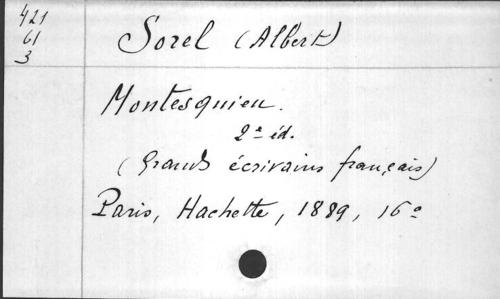 421
61
3
Sorel (Albert)
Montesquieu.
2e éd.
(Grands écrivains français)
Paris, Hachette, 1889, 16o